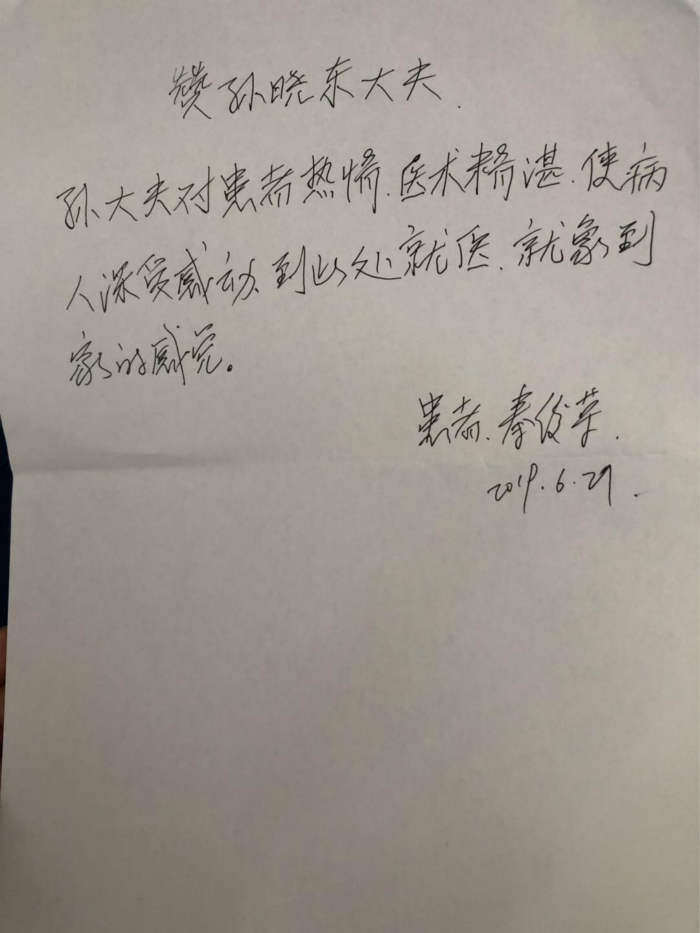 赞孙晓东大夫.
孙大夫对患者热情.医术精湛.使病
人深受感动.到此处就医.就象到
家的感觉。
患者.秦俊革.
2019.6.29.